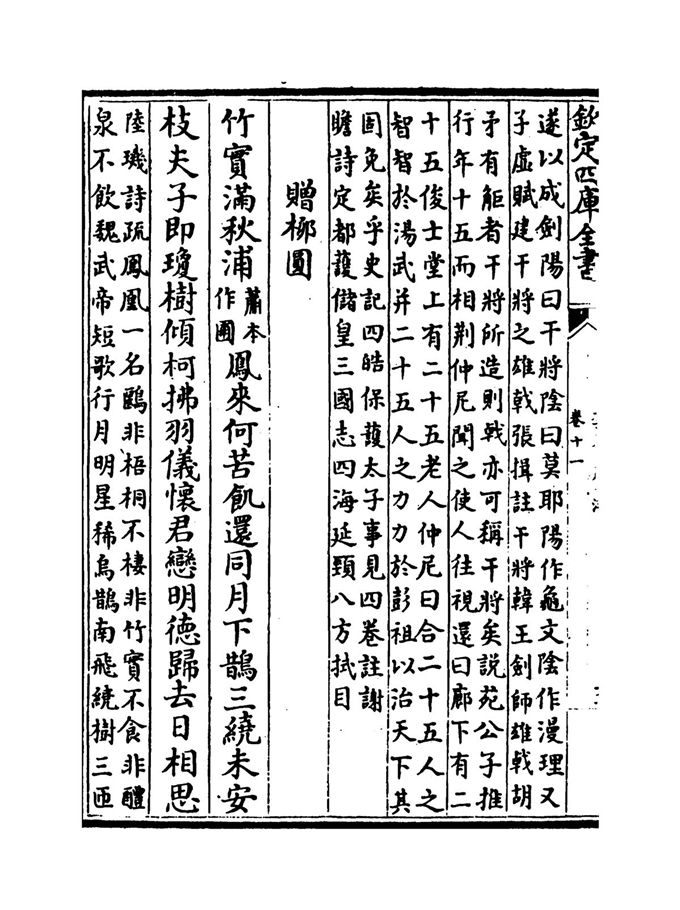 欽定四庫全書
卷十一
遂以成劍陽曰干將陰曰莫耶陽作龜文陰作漫理又
子虛賦建干將之雄戟張揖註干將韓王劍師雄戟胡
矛有鮔者干將所造則戟亦可稱干將矣説苑公子推
行年十五而相荆仲尼聞之使人往視還曰廊下有二
十五俊士堂上有二十五老人仲尼曰合二十五人之
智智於湯武并二十五人之力力於彭祖以治天下其
固免矣乎史記四皓保護太子事見四卷註謝
瞻詩定都護儲皇三國志四海延頸八方拭目
贈栁圓
竹實滿秋浦蕭本作圃鳳來何苦飢還同月下鵲三繞未安
枝夫子即瓊樹傾柯拂羽儀懷君戀明德歸去日相思
陸璣詩疏鳳凰一名鶠非梧桐不棲非竹實不食非醴
泉不飲魏武帝短歌行月明星稀烏鵲南飛繞樹三匝